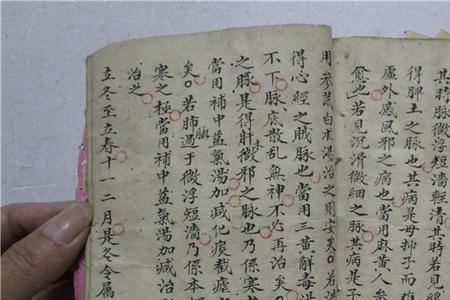 其時脉微浮短濇輕清其時若見
得脾土之脉也其病是母抑子而
虛外感風邪之病也當用麻黃人參
愈也若見沉滑微細之脉其病是子
用參芪白朮湯治之則安矣若洪
得心經之賊脉也當用三黃解毒
不下脉底散乱無神不必再治矣
之脉是得肝微邪之脉也乃係寒
當用補中益氣湯加減化痰截瘧
矣若肺脉過于微浮短濇乃係本
寒之極當用補中益氣湯加減治
治之
立冬至立春十一二月是冬令属